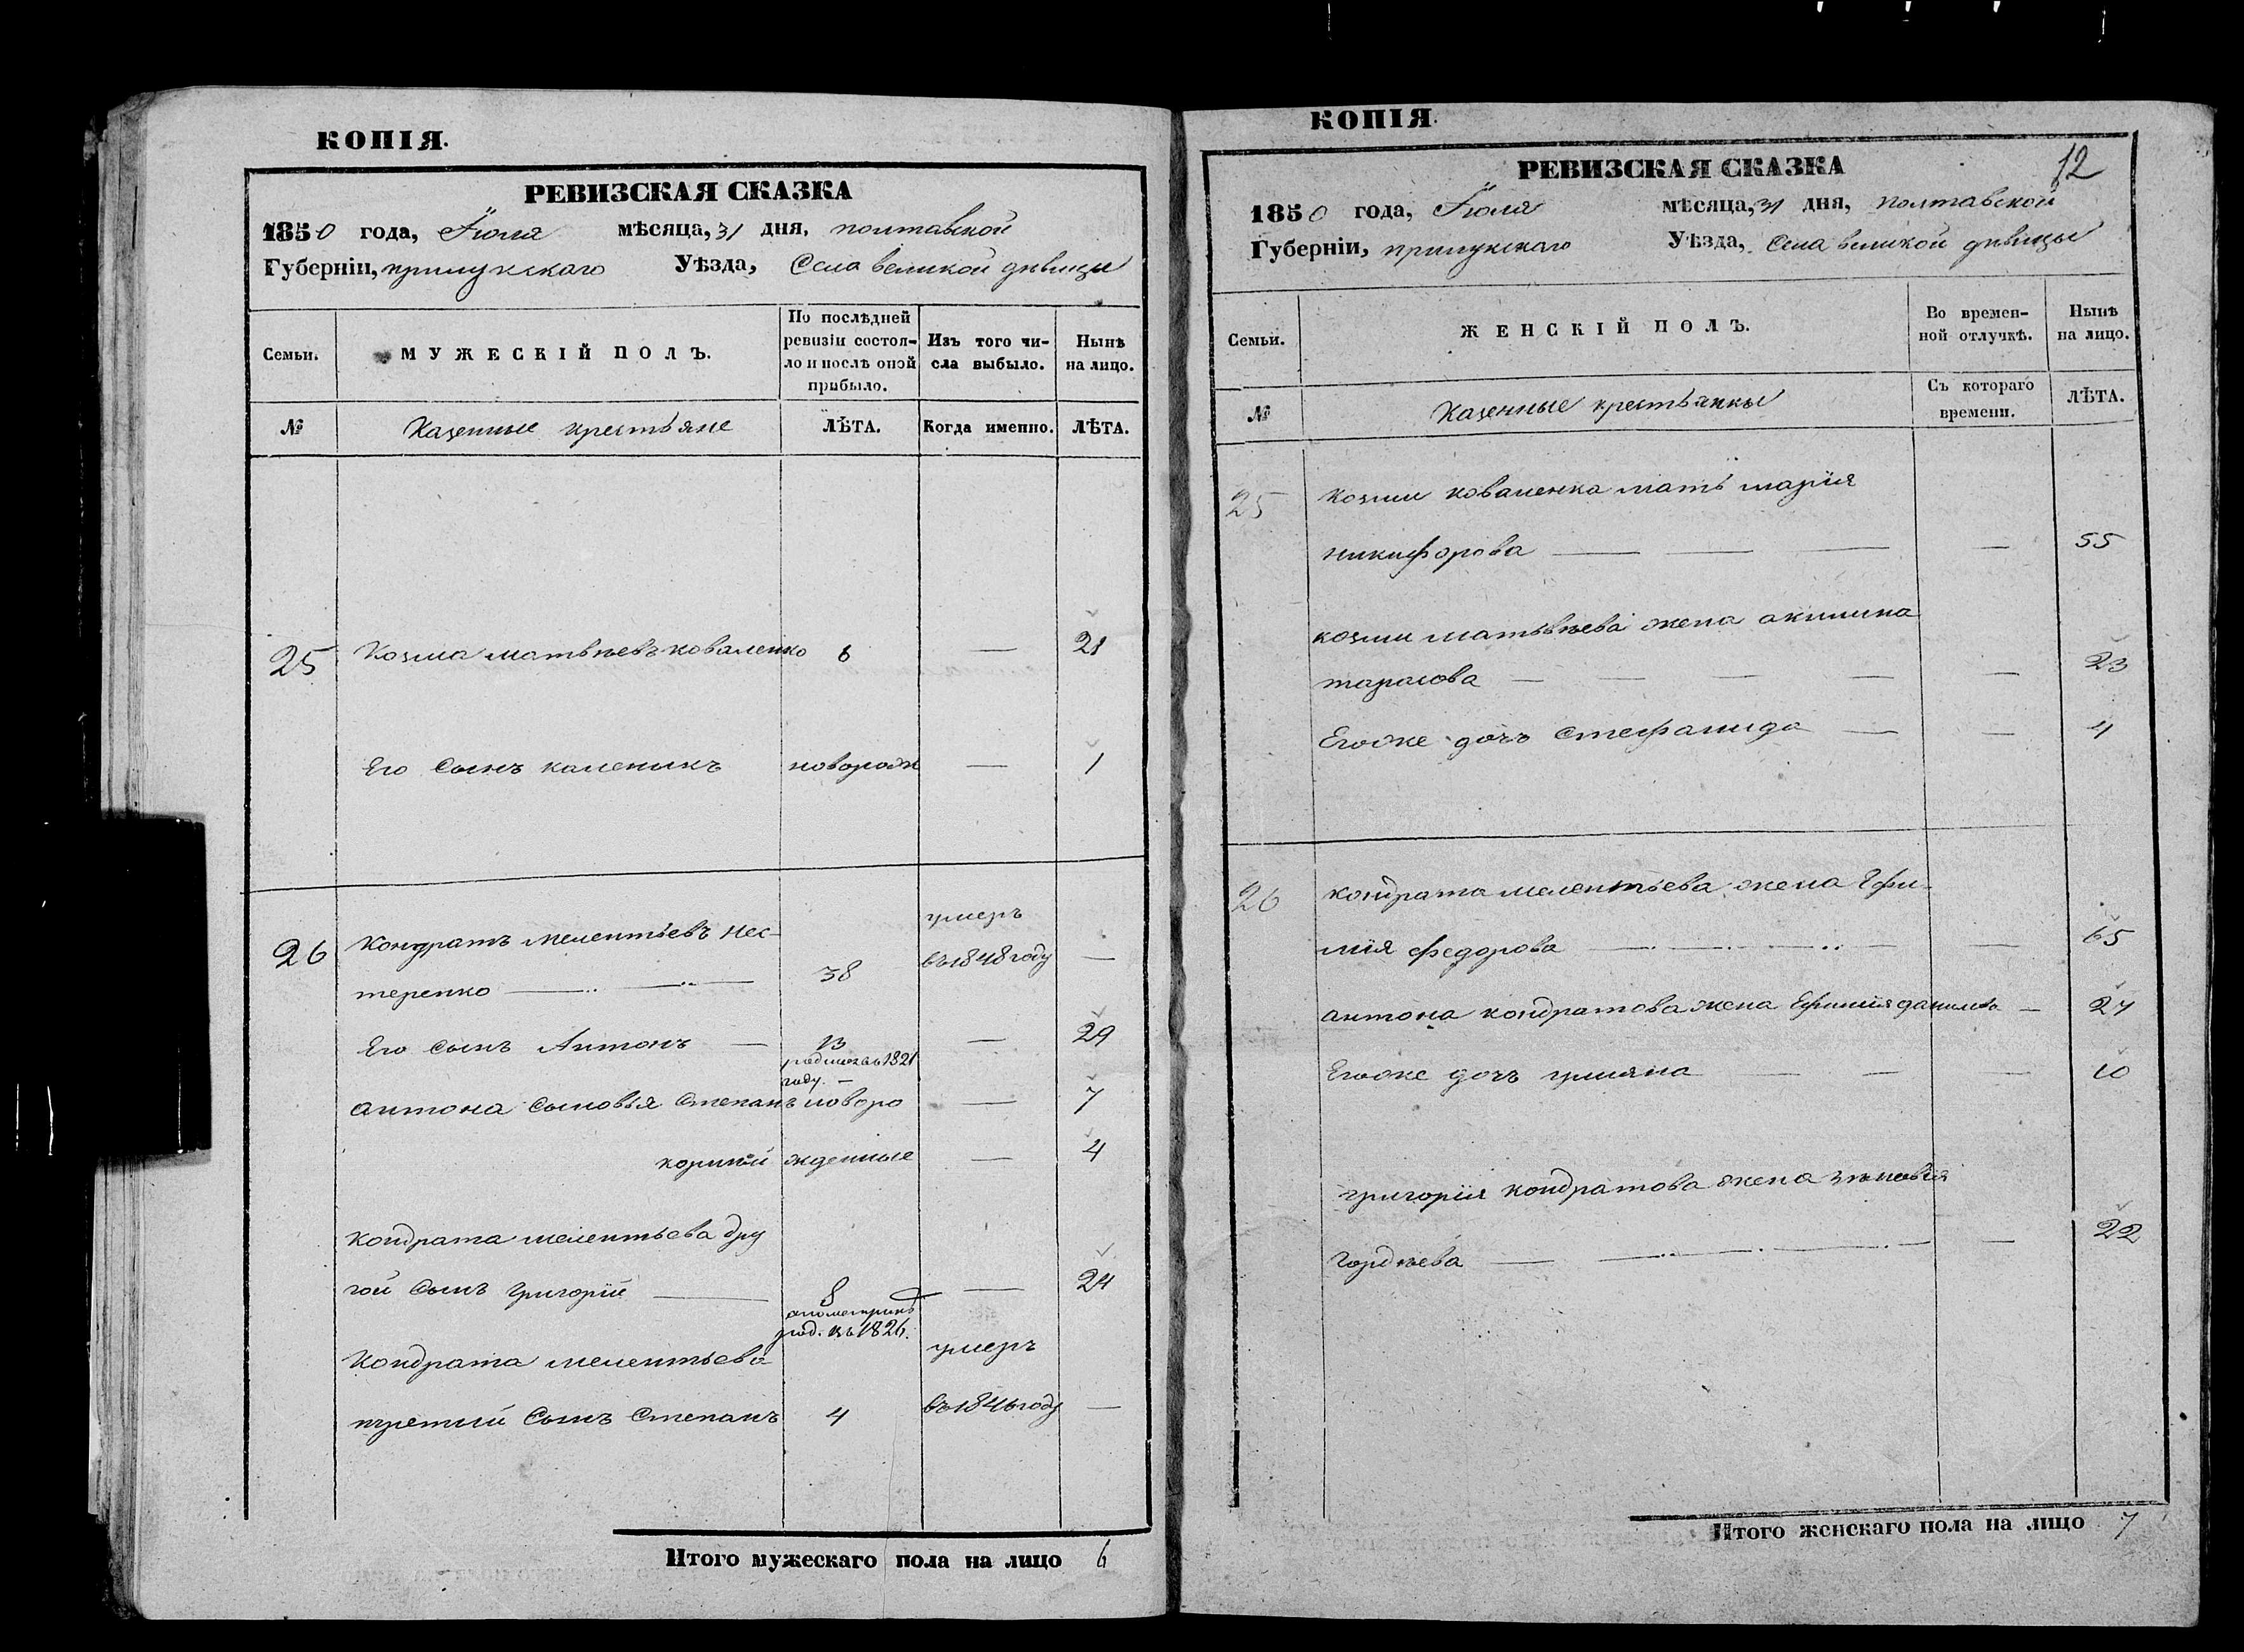 КОПІЯ.
РЕВИЗСКАЯ СКАЗКА
1850 года, Іюля мѣсяца, 31 дня, полтавской
Губерніи, прилукскаго Уѣзда, Села великой дѣвицы
Семьи.
МУЖЕСКІЙ ПОЛЪ.
По послѣдней ревизіи состояло и послѣ оной прибыло.
Изъ того числа выбыло.
Нынѣ на лицо.
№
Казенные крестьяне
ЛѢТА.
Когда именно.
ЛѢТА.
25 Козма матвѣевъ коваленко 6 — 21
Его Сынъ каленикъ новорож — 1
умеръ
26 Кондратъ мелентьевъ нес-
теренко 38 въ 1848 году —
Его Сынъ Антонъ — 13 — 29
родился въ 1821
году. —
антона Сыновья Степанъ новоро — 7
корнѣй жденные — 4
Кондрата мелентьева дру
гой Сынъ Григорій 8 — 24
род. въ 1826.
Кондрата мелентьева умеръ
третий Сынъ Степанъ 4 въ 1846 году —
Итого мужескаго пола на лицо 6
КОПІЯ
РЕВИЗСКАЯ СКАЗКА
12
1850 года, Іюля мѣсяца, 31 дня, полтавской
Губерніи, прилукскаго Уѣзда, Села великой дѣвицы
Семьи.
ЖЕНСКІЙ ПОЛЪ.
Во временной отлучкѣ.
Нынѣ на лицо.
№
Казенные крестьянкы
Съ котораго времени.
ЛѢТА.
25 козми коваленка мать марія
никифорова — 55
козми матвѣева жена акилина
тарасова — 23
Егоже дочь Стефанида — 4
26 кондрата мелентьева жена Ефи-
мія федорова — 65
антона кондратова жена Ефимія данилова — 27
Егоже дочь уліяна — 10
григорія кондратова жена зѣновія
Гордѣева — 22
Итого женскаго пола на лицо 7